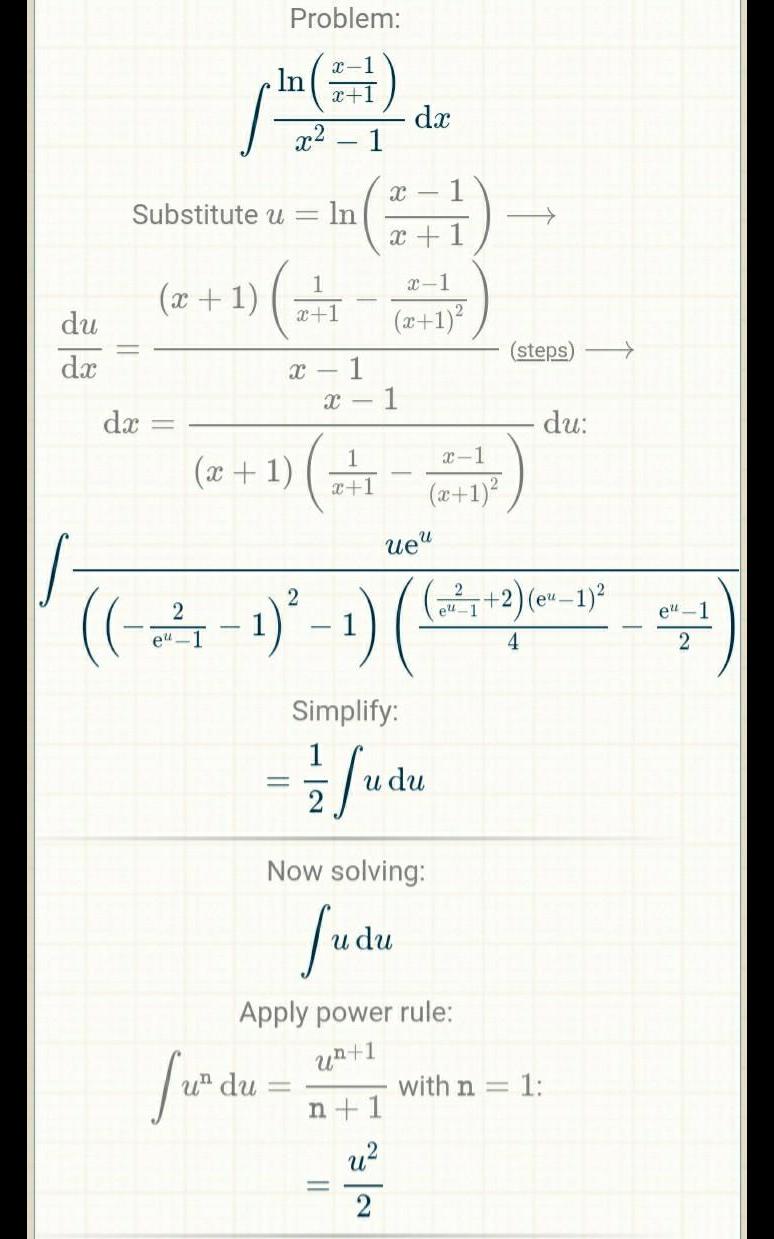 Problem:
∫ ln((x−1)/(x+1)) / (x² − 1) dx
Substitute u = ln((x − 1)/(x + 1)) ⟶
du/dx = (x + 1)(1/(x+1) − (x−1)/(x+1)²) / (x − 1) (steps) ⟶
dx = (x − 1) / ((x + 1)(1/(x+1) − (x−1)/(x+1)²)) du:
∫ ueᵘ / (((−2/(eᵘ−1) − 1)² − 1)((2/(eᵘ−1)+2)(eᵘ−1)²/4 − (eᵘ−1)/2))
Simplify:
= 1/2 ∫ u du
Now solving:
∫ u du
Apply power rule:
∫ uⁿ du = uⁿ⁺¹/(n + 1) with n = 1:
= u²/2